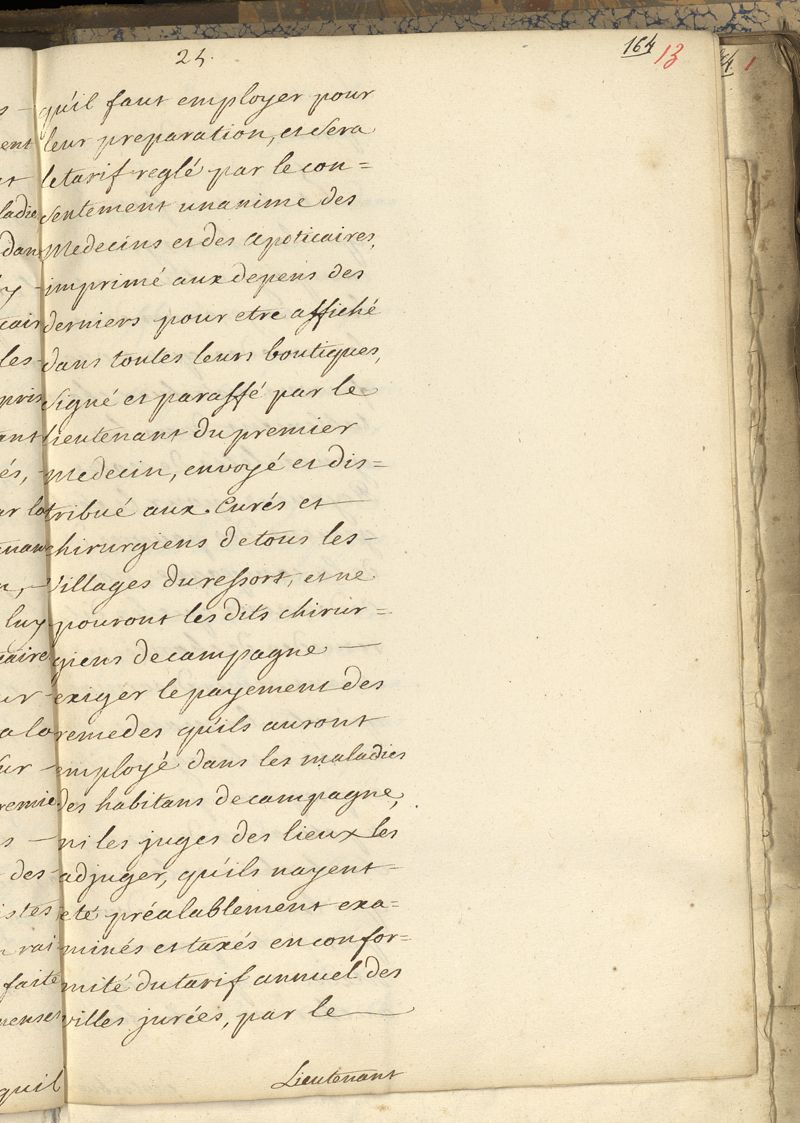 25.
164
13
qu'il faut employer pour
leur preparation, et sera
le tarif reglé par le con=
sentement unanime des
Medecins et des apoticaires,
imprimé aux depens des
derniers pour etre affiché
dans toutes leurs boutiques,
signé et paraffé par le
lieutenant du premier
medecin, envoyé et dis=
tribué aux Curés et
chirurgiens de tous les-
villages du ressort, et ne
pouront les dits chirur=
giens de campagne —
exiger le payement des
remedes qu'ils auront
employé dans les maladies
des habitans de campagne,
ni les juges des lieux les
adjuger, qu'ils nayent-
eté préalablement exa=
minés et taxés en confor=
mité du tarif annuel des
villes jurées, par le
Lieutenant